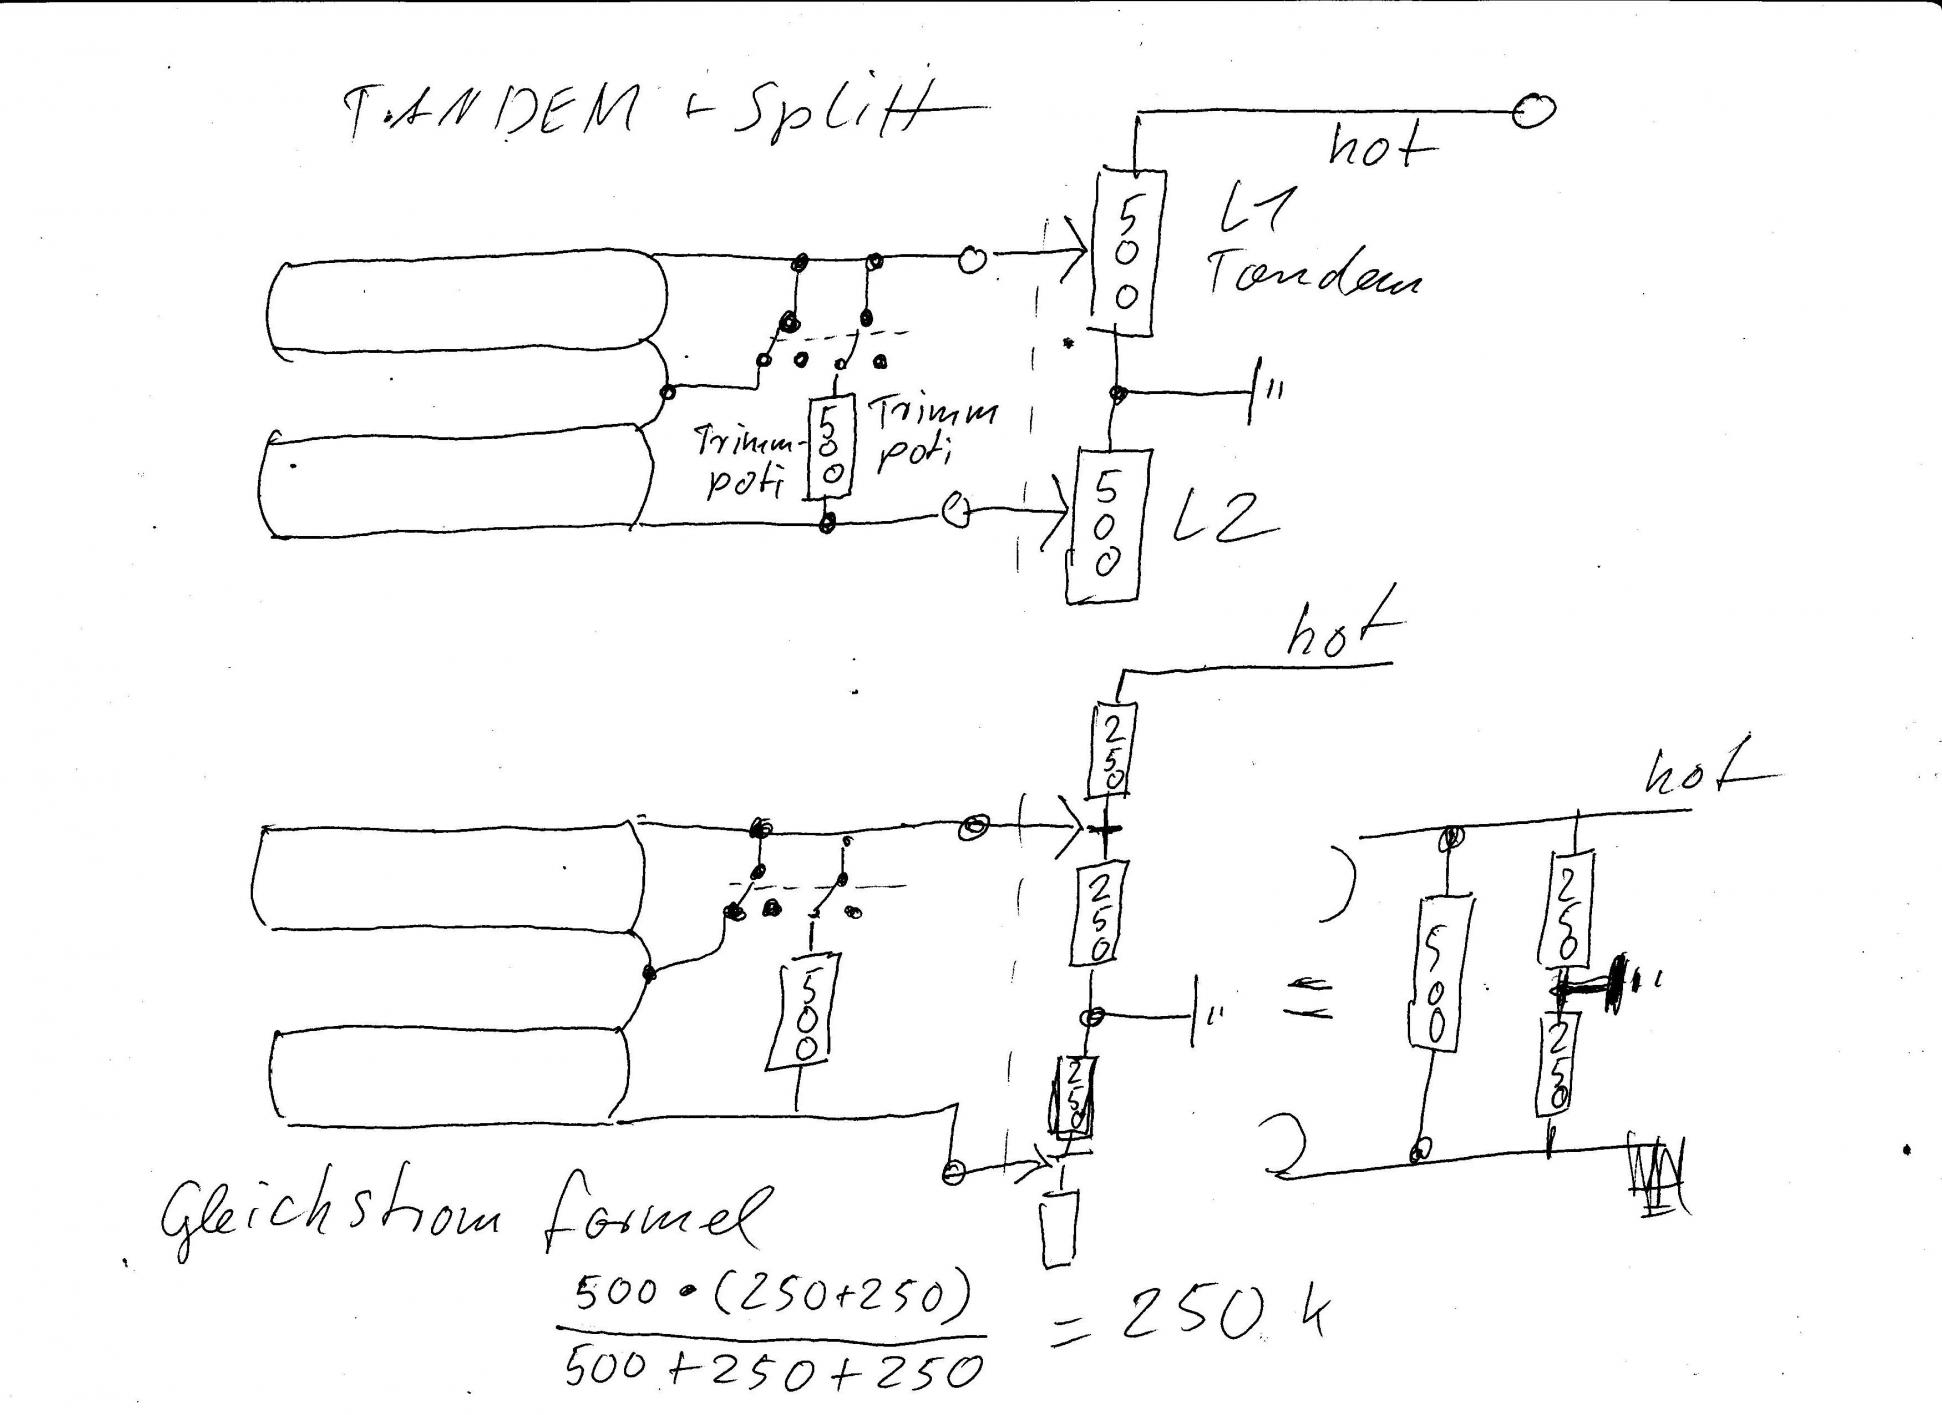 TANDEM + Splitt
hot
500
L1
Tandem
Trimm-
poti
500
Trimm
poti
500
L2
hot
250
hot
250
500
250
500
250
250
Gleichstrom formel
500 • (250+250)
500 + 250 + 250
= 250 k